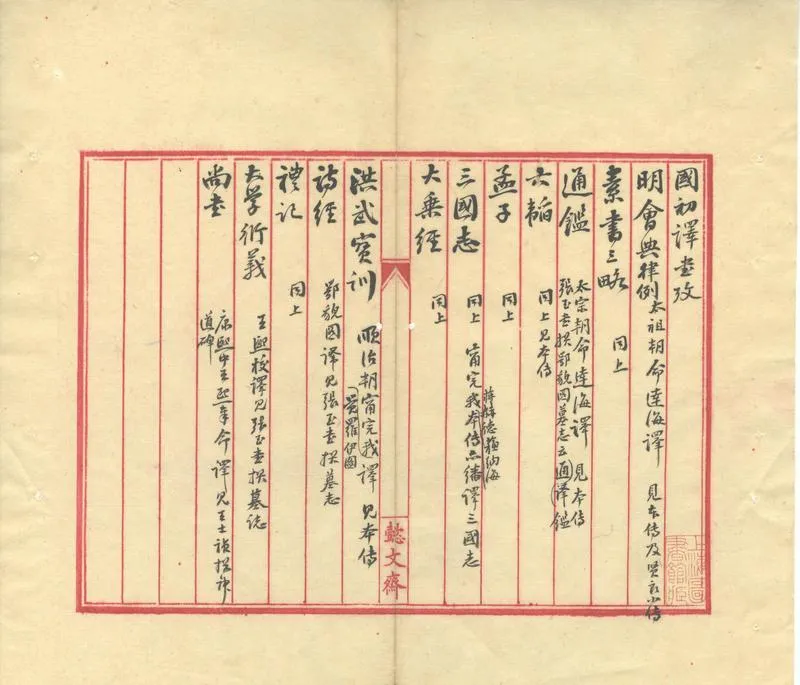 國初譯書攷
明會典律例 太祖朝命達海譯 見本傳及賢良小傳
素書三略 同上
通鑑 太宗朝命達海譯 見本傳
張玉書撰鄂貌圖墓志云通鑑
譯
六韜 同上見本傳
孟子 同上
三國志 同上 甯完我本傳亦繙譯三國志
蔣赫德 籠納海
大乗經 同上
懿文齋
洪武寳訓 順治朝甯完我譯 見本傳
覺羅伊圖
詩經 鄂貌圖譯見張玉書撰墓志
禮記 同上
大學衍義 王熙校譯見張玉書撰墓志
尚書 康熙中王熙奉命譯見王士禎撰神
道碑